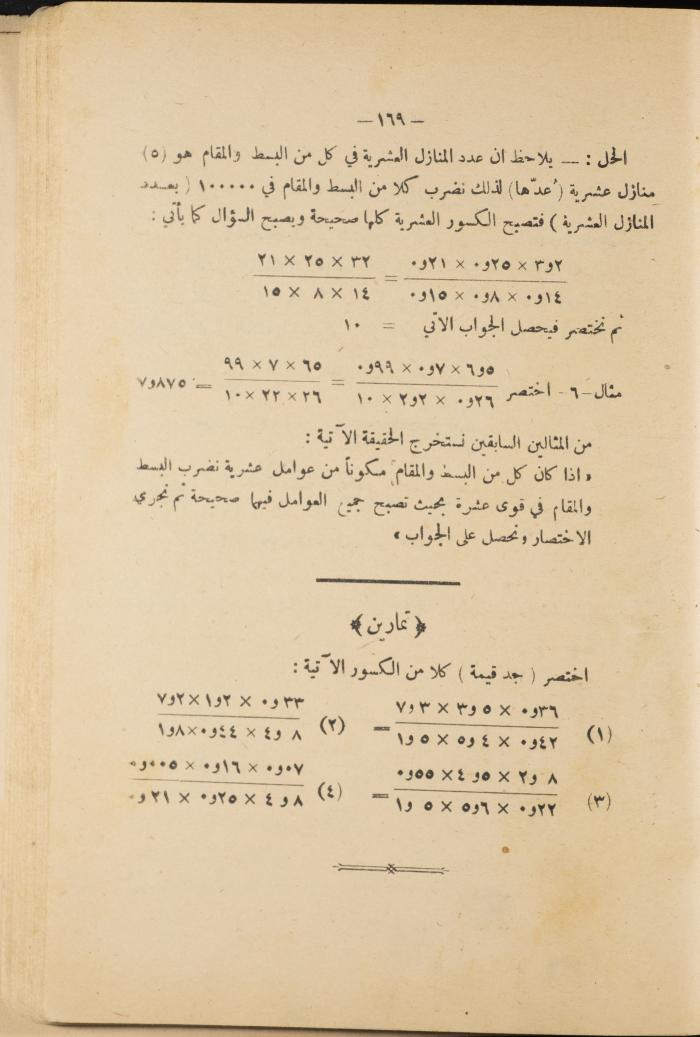 — ١٦٩ —
الحل : — يلاحظ ان عدد المنازل العشرية في كل من البسط والمقام هو (٥)
منازل عشرية (عُدّها) لذلك نضرب كلا من البسط والمقام في ١٠٠٠٠٠ ( بعدد
المنازل العشرية ) فتصبح الكسور العشرية كلها صحيحة ويصبح السؤال كما يأتي :
٣و٢ × ٠و٢٥ × ٠و٢١ = ٣٢ × ٢٥ × ٢١
٠و١٤ × ٠و٨ × ٠و١٥ ١٤ × ٨ × ١٥
ثم نختصر فيحصل الجواب الآتي = ١٠
مثال - ٦ - اختصر ٦و٥ × ٠و٧ × ٠و٩٩ = ٦٥ × ٧ × ٩٩ = ٧و٨٧٥
٠و٢٦ × ٢و٢ × ١٠ ٢٦ × ٢٢ × ١٠
من المثالين السابقين نستخرج الحقيقة الآتية :
« اذا كان كل من البسط والمقام مكوناً من عوامل عشرية نضرب البسط
والمقام في قوى عشرة بحيث تصبح جميع العوامل فيها صحيحة ثم نجري
الاختصار ونحصل على الجواب »
﴿ تمارين ﴾
اختصر ( جد قيمة ) كلا من الكسور الآتية :
(١) ٠و٣٦ × ٣و٥ × ٧و٣ = (٢) ٠و٣٣ × ١و٢ × ٧و٢
٠و٤٢ × ٥و٤ × ١و٥ ٤و٨ × ٠و٤٤ × ١و٨
(٣) ٢و٨ × ٤و٥ × ٠و٥٥ = (٤) ٠و٠٧ × ٠و١٦ × ٠و٠٠٥
٠و٢٢ × ٥و٦ × ١و٥ ٤و٨ × ٠و٢٥ × ٠و٢١